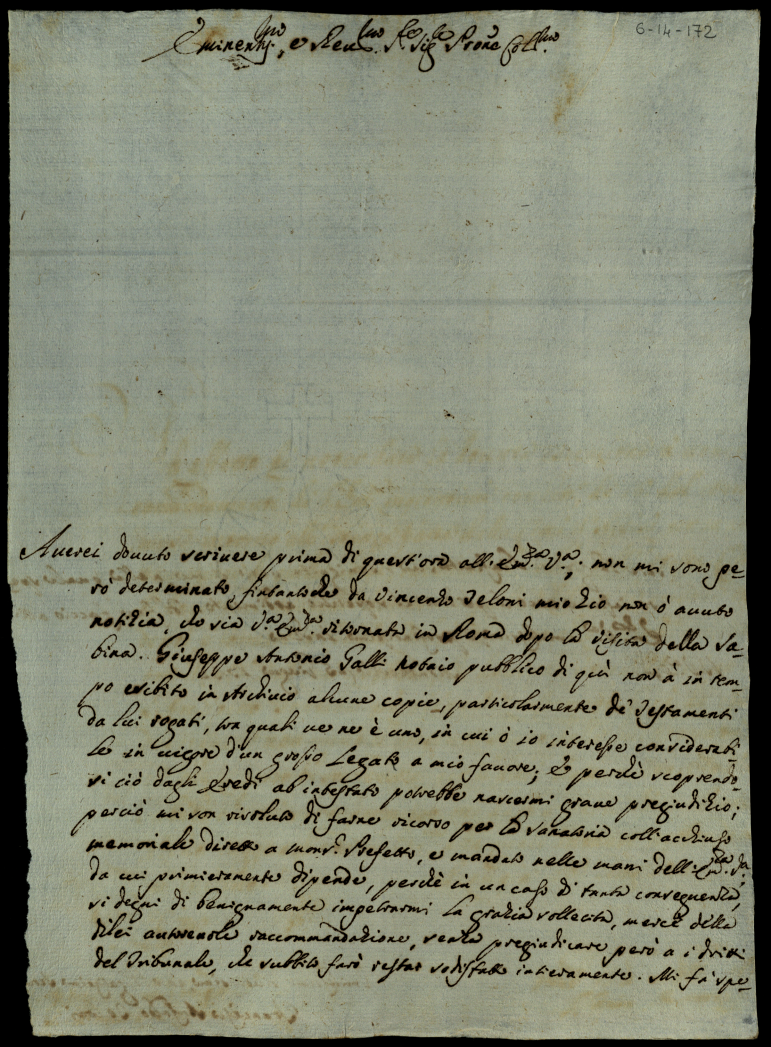 6-14-172
Eminentis.mo, e Reu.mo P.re Sig.re Prone Coll.mo
Auerei douuto scriuere prima di quest'ora all'Em.za V.a; non mi sono pe-
rò determinato, fintantoche da Vincenzo Feloni mio Zio non ò auuto
notizia, che sia V.a Em.za ritornata in Roma dopo la visita della Sa-
bina. Giuseppe Antonio Galli Notaio pubblico di quì non à in tem-
po esibito in Archiuio alcune copie, particolarmente de' Testamenti
da lui rogati, tra quali ue ne è uno, in cui ò io interesse considerabi-
le in uigore d'un grosso Legato a mio fauore; E perchè scoprendo-
si ciò dagli Eredi ab intestato potrebbe nascermi graue pregiudizio;
perciò mi son risoluto di farne ricorso per la sanatoria coll'acchiuso
memoriale diretto a Mons.r Prefetto, e mandato nelle mani dell'Em.za V.a,
da cui primieramente dipende, perchè in un caso di tanta conseguenza,
si degni di benignamente impetrarmi la grazia sollecita, mercè della
dilei autoreuole raccommandazione, senza pregiudicare però a i dritti
del Tribunale, che subbito farò restar sodisfatto intieramente. Mi fà spe-